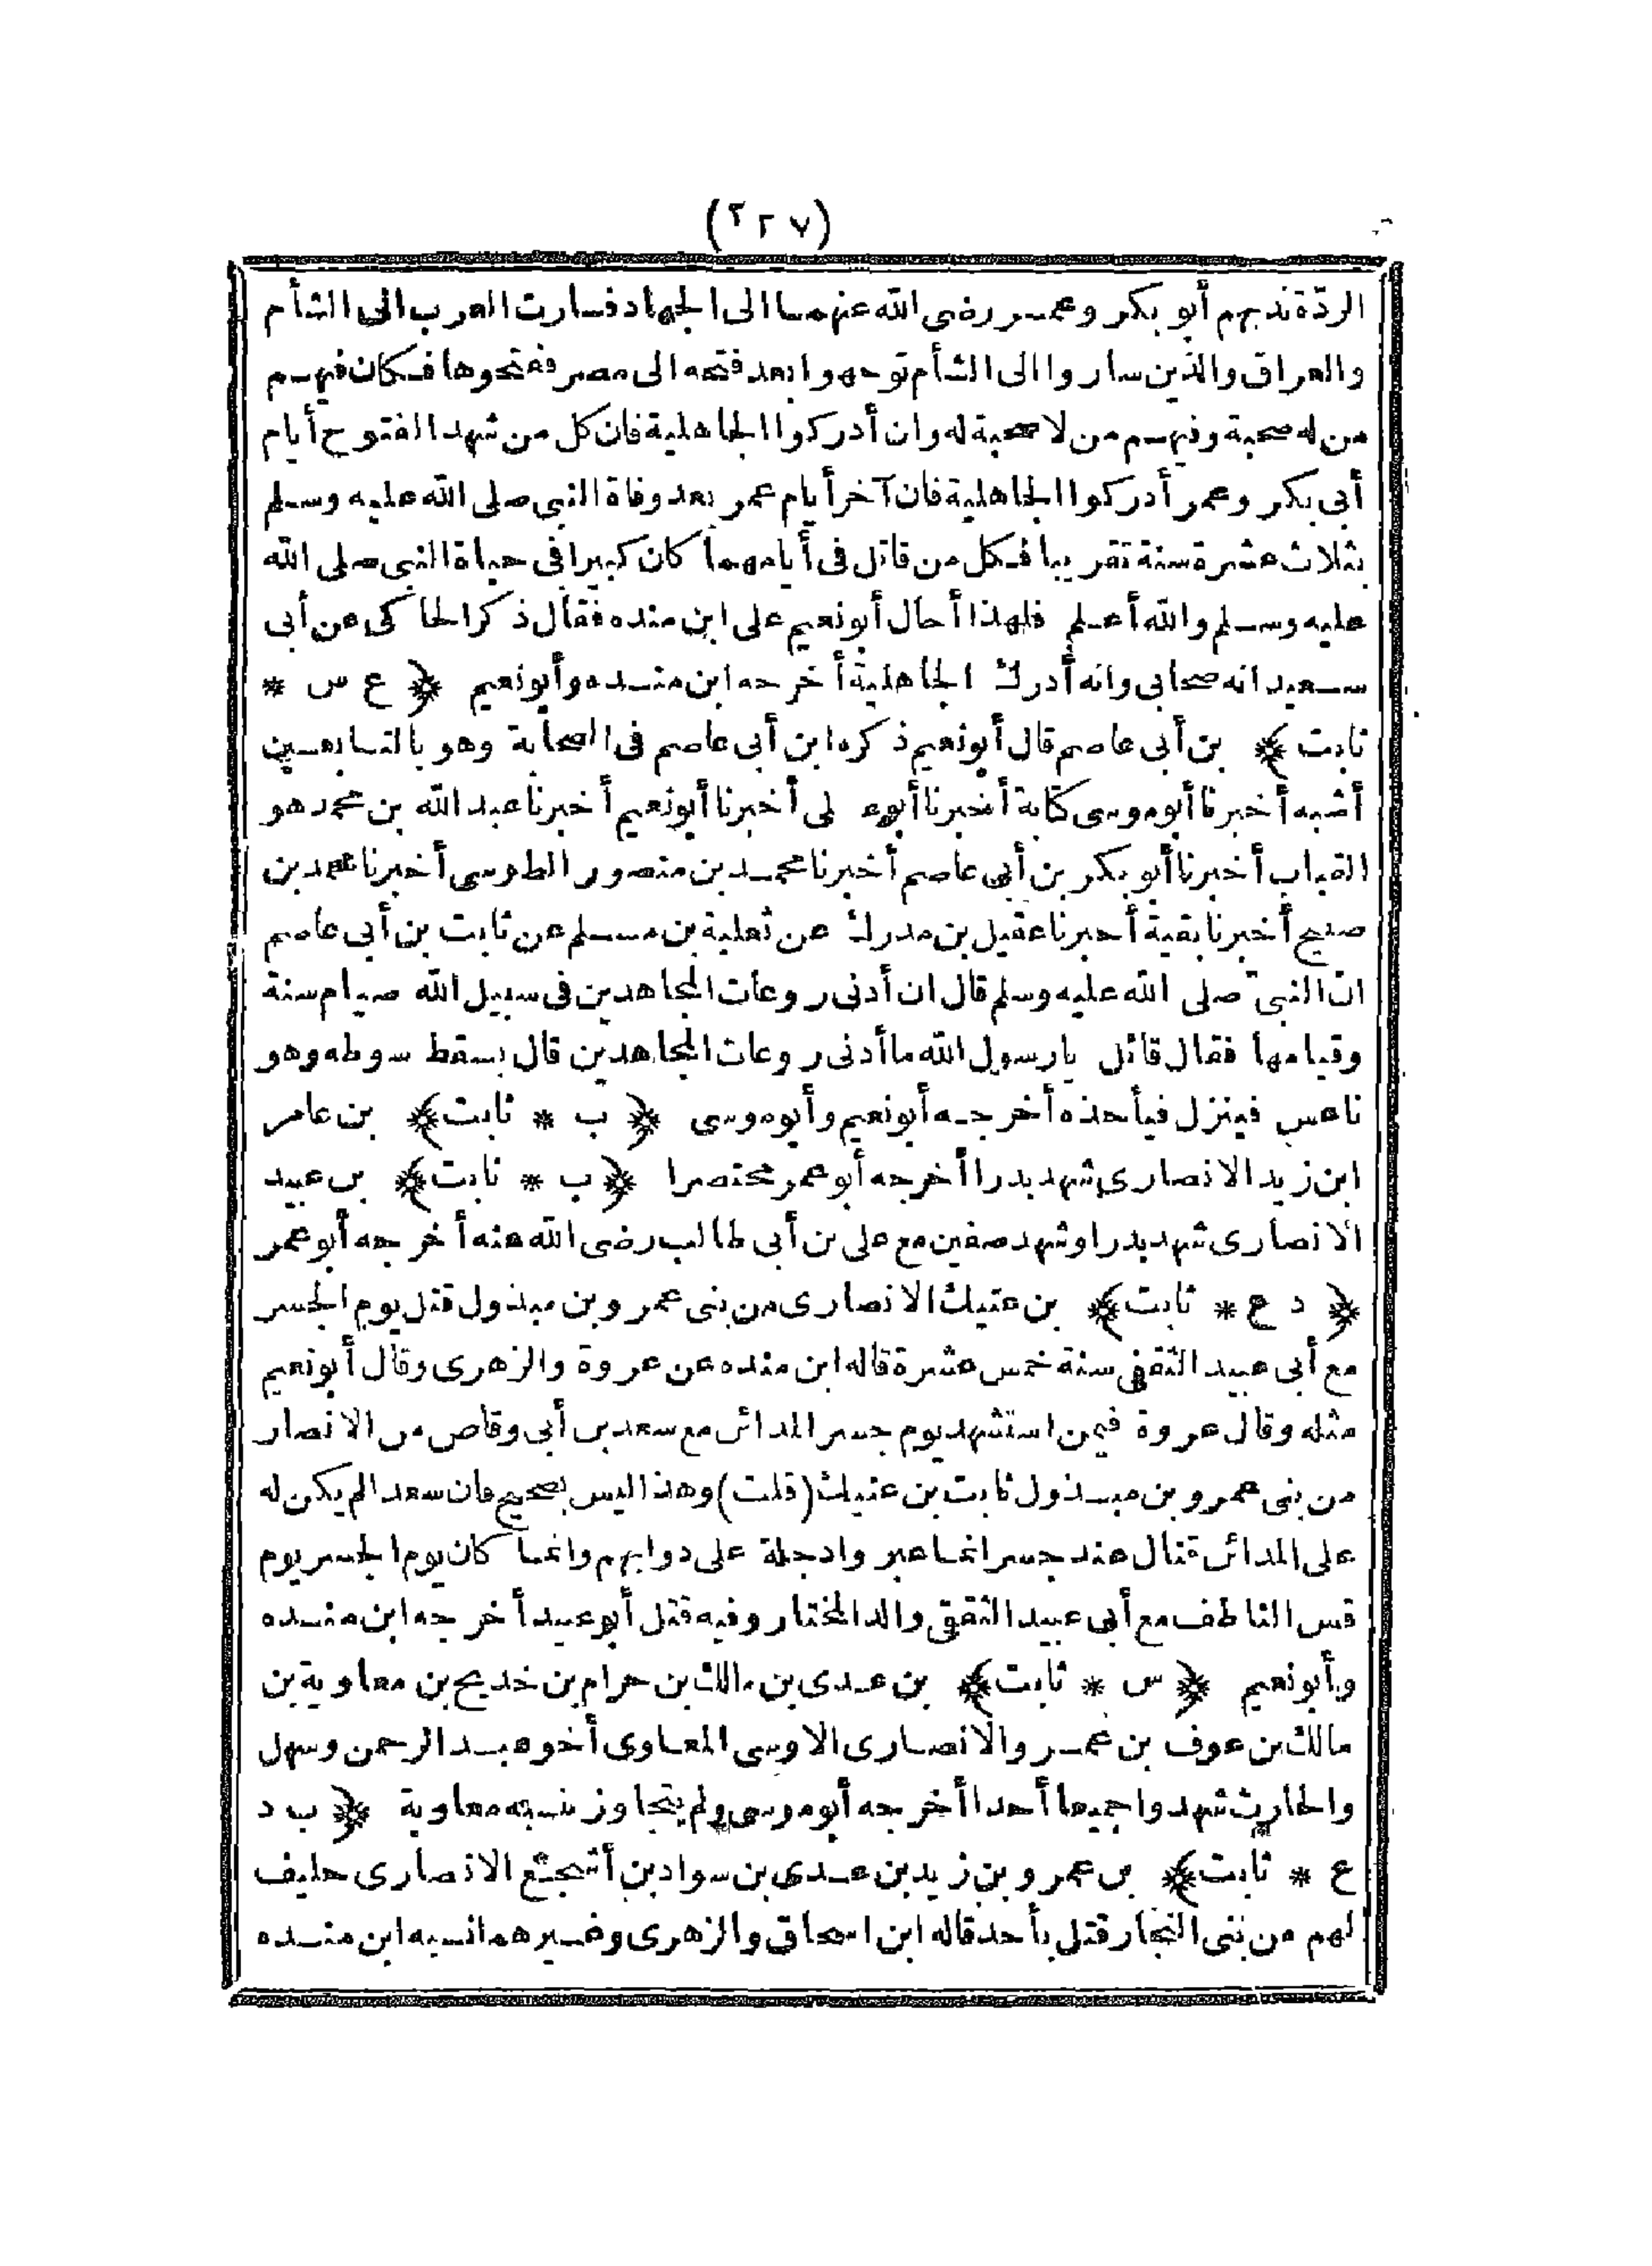 (٢٢٧)
الردّة ندبهم أبو بكر وعمر رضى الله عنهما الى الجهاد فسارت العرب الى الشأم
والعراق والذين ساروا الى الشأم توجهوا بعد فتحه الى مصر ففتحوها فكان فيهم
من له صحبة وفيهم من لا صحبة له وان أدركوا الجاهلية فان كل من شهد الفتوح أيام
أبى بكر وعمر أدركوا الجاهلية فان آخر أيام عمر بعد وفاة النبى صلى الله عليه وسلم
بثلاث عشرة سنة تقريبا فكل من قاتل فى أيامهما كان كبيرا فى حياة النبى صلى الله
عليه وسلم والله أعلم فلهذا أحال أبو نعيم على ابن منده فقال ذكر الحاكى عن أبى
سعيد انه صحابى وانه أدرك الجاهلية أخرجه ابن منده وأبو نعيم ﴿ ع س *
ثابت ﴾ بن أبى عاصم قال أبو نعيم ذكره ابن أبى عاصم فى الصحابة وهو بالتابعين
أشبه أخبرنا أبو موسى كتابة أخبرنا أبو على أخبرنا أبو نعيم أخبرنا عبد الله بن محمد هو
القباب أخبرنا أبو بكر بن أبى عاصم أخبرنا محمد بن منصور الطوسى أخبرنا محمد بن
صبيح أخبرنا بقية أخبرنا عقيل بن مدرك عن ثعلبة بن مسلم عن ثابت بن أبى عاصم
انّ النبىّ صلى الله عليه وسلم قال ان أدنى روعات المجاهدين فى سبيل الله صيام سنة
وقيامها فقال قائل يا رسول الله ما أدنى روعات المجاهدين قال يسقط سوطه وهو
ناعس فينزل فيأخذه أخرجه أبو نعيم وأبو موسى ﴿ ب * ثابت ﴾ بن عامر
ابن زيد الانصارى شهد بدرا أخرجه أبو عمر مختصرا ﴿ ب * ثابت ﴾ بن عبيد
الانصارى شهد بدرا وشهد صفين مع على بن أبى طالب رضى الله عنه أخرجه أبو عمر
﴿ د ع * ثابت ﴾ بن عتيك الانصارى من بنى عمرو بن مبذول قتل يوم الجسر
مع أبى عبيد الثقفى سنة خمس عشرة قاله ابن منده عن عروة والزهرى وقال أبو نعيم
مثله وقال عروة فيمن استشهد يوم جسر المدائن مع سعد بن أبى وقاص من الانصار
من بنى عمرو بن مبذول ثابت بن عتيك (قلت) وهذا ليس بصحيح فان سعدا لم يكن له
على المدائن قتال عند جسر انما عبروا دجلة على دوابهم وانما كان يوم الجسر يوم
قس الناطف مع أبى عبيد الثقفى والد المختار وفيه قتل أبو عبيد أخرجه ابن منده
وأبو نعيم ﴿ س * ثابت ﴾ بن عدى بن مالك بن حرام بن خديج بن معاوية بن
مالك بن عوف بن عمرو الانصارى الاوسى المعاوى أخو عبد الرحمن وسهل
والحارث شهدوا جميعا أحدا أخرجه أبو موسى ولم يتجاوز نسبه معاوية ﴿ ب د
ع * ثابت ﴾ بن عمرو بن زيد بن عدى بن سواد بن أشجع الانصارى حليف
لهم من بنى النجار قتل بأحد قاله ابن اسحاق والزهرى وغيرهما نسبه ابن منده